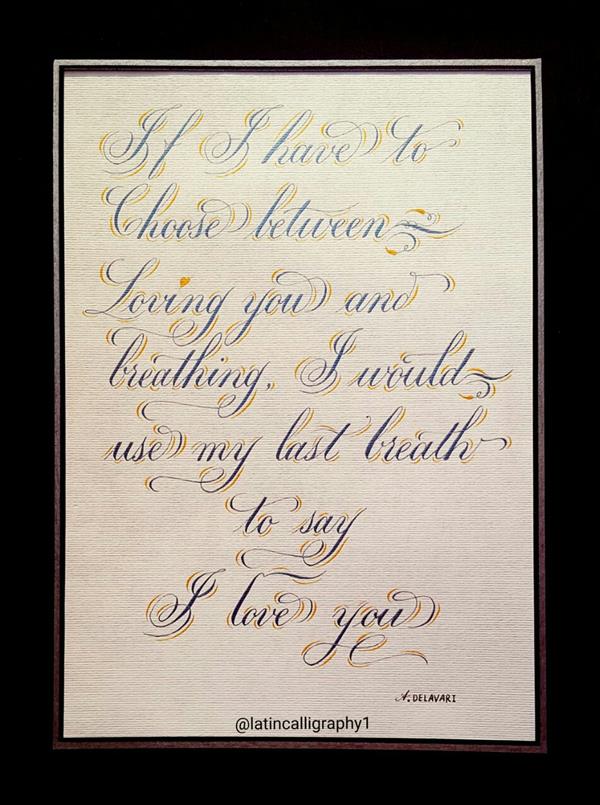 If I have to
Choose between
Loving you and
breathing, I would
use my last breath
to say
I love you
A. DELAVARI
@latincalligraphy1